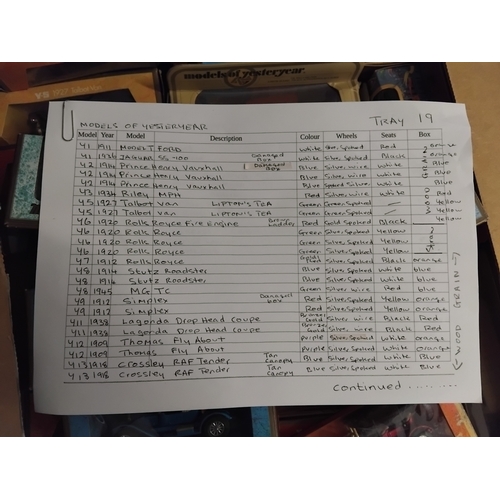 models of yesteryear
MODELS OF YESTERYEAR TRAY 19
Model Year Model Description Colour Wheels Seats Box
Y1 1911 MODEL T. FORD White Silver, Spoked Red orange
Y1 1936 JAGUAR SS. 100 Damaged Box White Silver, Spoked Black orange
Y2 1914 Prince Henry Vauxhall Damaged Box Blue Silver, wire White Blue
Y2 1914 Prince Henry Vauxhall Blue Silver, wire White Blue
Y2 1914 Prince Henry Vauxhall Blue Spoked Silver White Blue
Y3 1934 Riley MPH Red Silver, wire White Red
Y5 1927 Talbot van LIPTON'S TEA Green Silver, Spoked Yellow
Y5 1927 Talbot van LIPTON'S TEA Green Silver, Spoked Yellow
Y6 1920 Rolls Royce Fire Engine Brown Ladder Red Gold Spoked Black Yellow
Y6 1920 Rolls Royce Green Silver, Spoked Yellow Straw
Y6 1920 Rolls Royce Green Silver, Spoked Yellow
Y6 1920 Rolls Royce Green Silver, Spoked Yellow
Y7 1912 Rolls Royce Gold/Red Silver, Spoked Black orange
Y8 1914 Stutz Roadster Blue Silver, Spoked White blue
Y8 1914 Stutz Roadster Blue Silver, Spoked White blue
Y8 1945 MG. TC Green Silver, wire Red blue
Y9 1912 Simplex Damaged box Red Silver, Spoked Yellow orange
Y9 1912 Simplex Red Silver, Spoked Yellow orange
Y11 1938 Lagonda Drop Head Coupe Bronze Gold Silver, wire Black Red
Y11 1938 Lagonda Drop Head Coupe Bronze Gold Silver, wire Black Red
Y12 1909 Thomas Fly About Purple Silver, Spoked White orange
Y12 1909 Thomas Fly About Purple Silver, Spoked White orange
Y13 1918 Crossley RAF Tender Tan Canopy Blue Silver, Spoked White Blue
Y13 1918 Crossley RAF Tender Tan Canopy Blue Silver, Spoked White Blue
WOOD GRAIN
WOOD GRAIN
continued ........